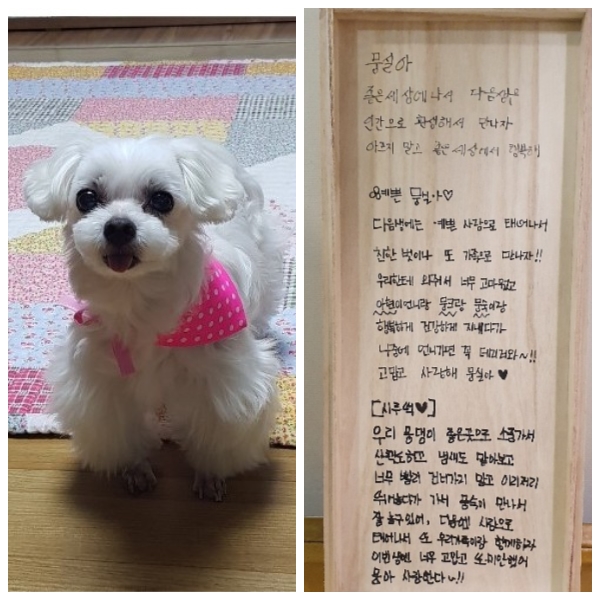 뭉실아
좋은세상에나서 다음생은
인간으로 환생해서 만나자
아프지 말고 좋은세상에서 행복해
예쁜 뭉실아♡
다음생에는 예쁜 사람으로 태어나서
친한 벗이나 또 가족으로 만나자!!
우리한테 와줘서 너무 고마웠고
아현이언니랑 뭉크랑 뭉숙이랑
행복하게 건강하게 지내다가
나중에 언니가면 꼭 데리러와~!!
고맙고 사랑해 뭉실아♥
우리 뭉댕이 좋은곳으로 소풍가서
산책도하고 냄새도 맡아보고
너무 빨리 건너가지 말고 이리저리
뛰어놀다가 가서 뭉숙이 만나서
잘 놀구있어, 다음엔 사람으로
태어나서 또 우리가족이랑 함께하자
이번생엔 너무 고맙고 또 미안했어
뭉아 사랑한다~!!